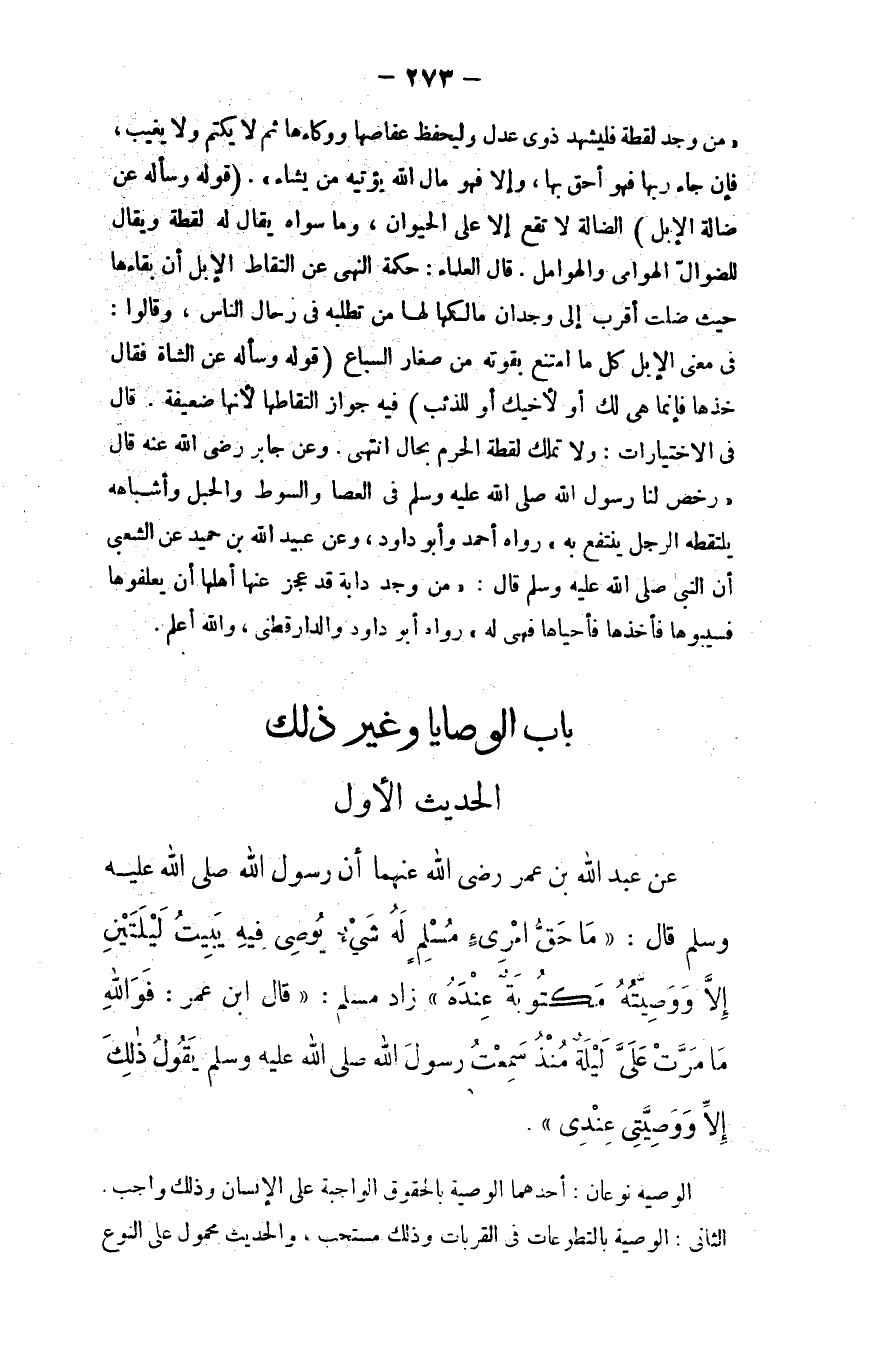 — ٢٧٣ —
« من وجد لقطة فليشهد ذوى عدل وليحفظ عفاصها ووكاءها ثم لا يكتم ولا يغيب ،
فإن جاء ربها فهو أحق بها ، وإلا فهو مال الله يؤتيه من يشاء » . ( قوله وسأله عن
ضالة الإبل ) الضالة لا تقع إلا على الحيوان ، وما سواه يقال له لقطة ويقال
للضوالّ الهوامى والهوامل . قال العلماء : حكمة النهى عن التقاط الإبل أن بقاءها
حيث ضلت أقرب إلى وجدان مالكها لها من تطلبه فى رحال الناس ، وقالوا :
فى معنى الإبل كل ما امتنع بقوته من صغار السباع ( قوله وسأله عن الشاة فقال
خذها فإنما هى لك أو لأخيك أو للذئب ) فيه جواز التقاطها لأنها ضعيفة . قال
فى الاختيارات : ولا تملك لقطة الحرم بحال انتهى . وعن جابر رضى الله عنه قال
« رخص لنا رسول الله صلى الله عليه وسلم فى العصا والسوط والحبل وأشباهه
يلتقطه الرجل ينتفع به » رواه أحمد وأبو داود ، وعن عبيد الله بن حميد عن الشعبى
أن النبى صلى الله عليه وسلم قال : « من وجد دابة قد عجز عنها أهلها أن يعلفوها
فسيبوها فأخذها فأحياها فهى له » رواه أبو داود والدارقطنى ، والله أعلم .
باب الوصايا وغير ذلك
الحديث الأول
عن عبد الله بن عمر رضى الله عنهما أن رسول الله صلى الله عليه
وسلم قال : « مَا حَقُّ امْرِىءٍ مُسْلِمٍ لَهُ شَيْءٌ يُوصِى فِيهِ يَبِيتُ لَيْلَتَيْنِ
إِلاَّ وَوَصِيَّتُهُ مَكتُوبَةٌ عِنْدَهُ » زاد مسلم : « قال ابن عمر : فَوَاللهِ
مَا مَرَّتْ عَلَىَّ لَيْلَةٌ مُنْذُ سَمِعْتُ رسولَ الله صلى الله عليه وسلم يَقُولُ ذٰلِكَ
إِلاَّ وَوَصِيَّتِى عِنْدِى » .
الوصيه نوعان : أحدهما الوصية بالحقوق الواجبة على الإنسان وذلك واجب .
الثانى : الوصية بالتطوعات فى القربات وذلك مستحب ، والحديث محمول على النوع